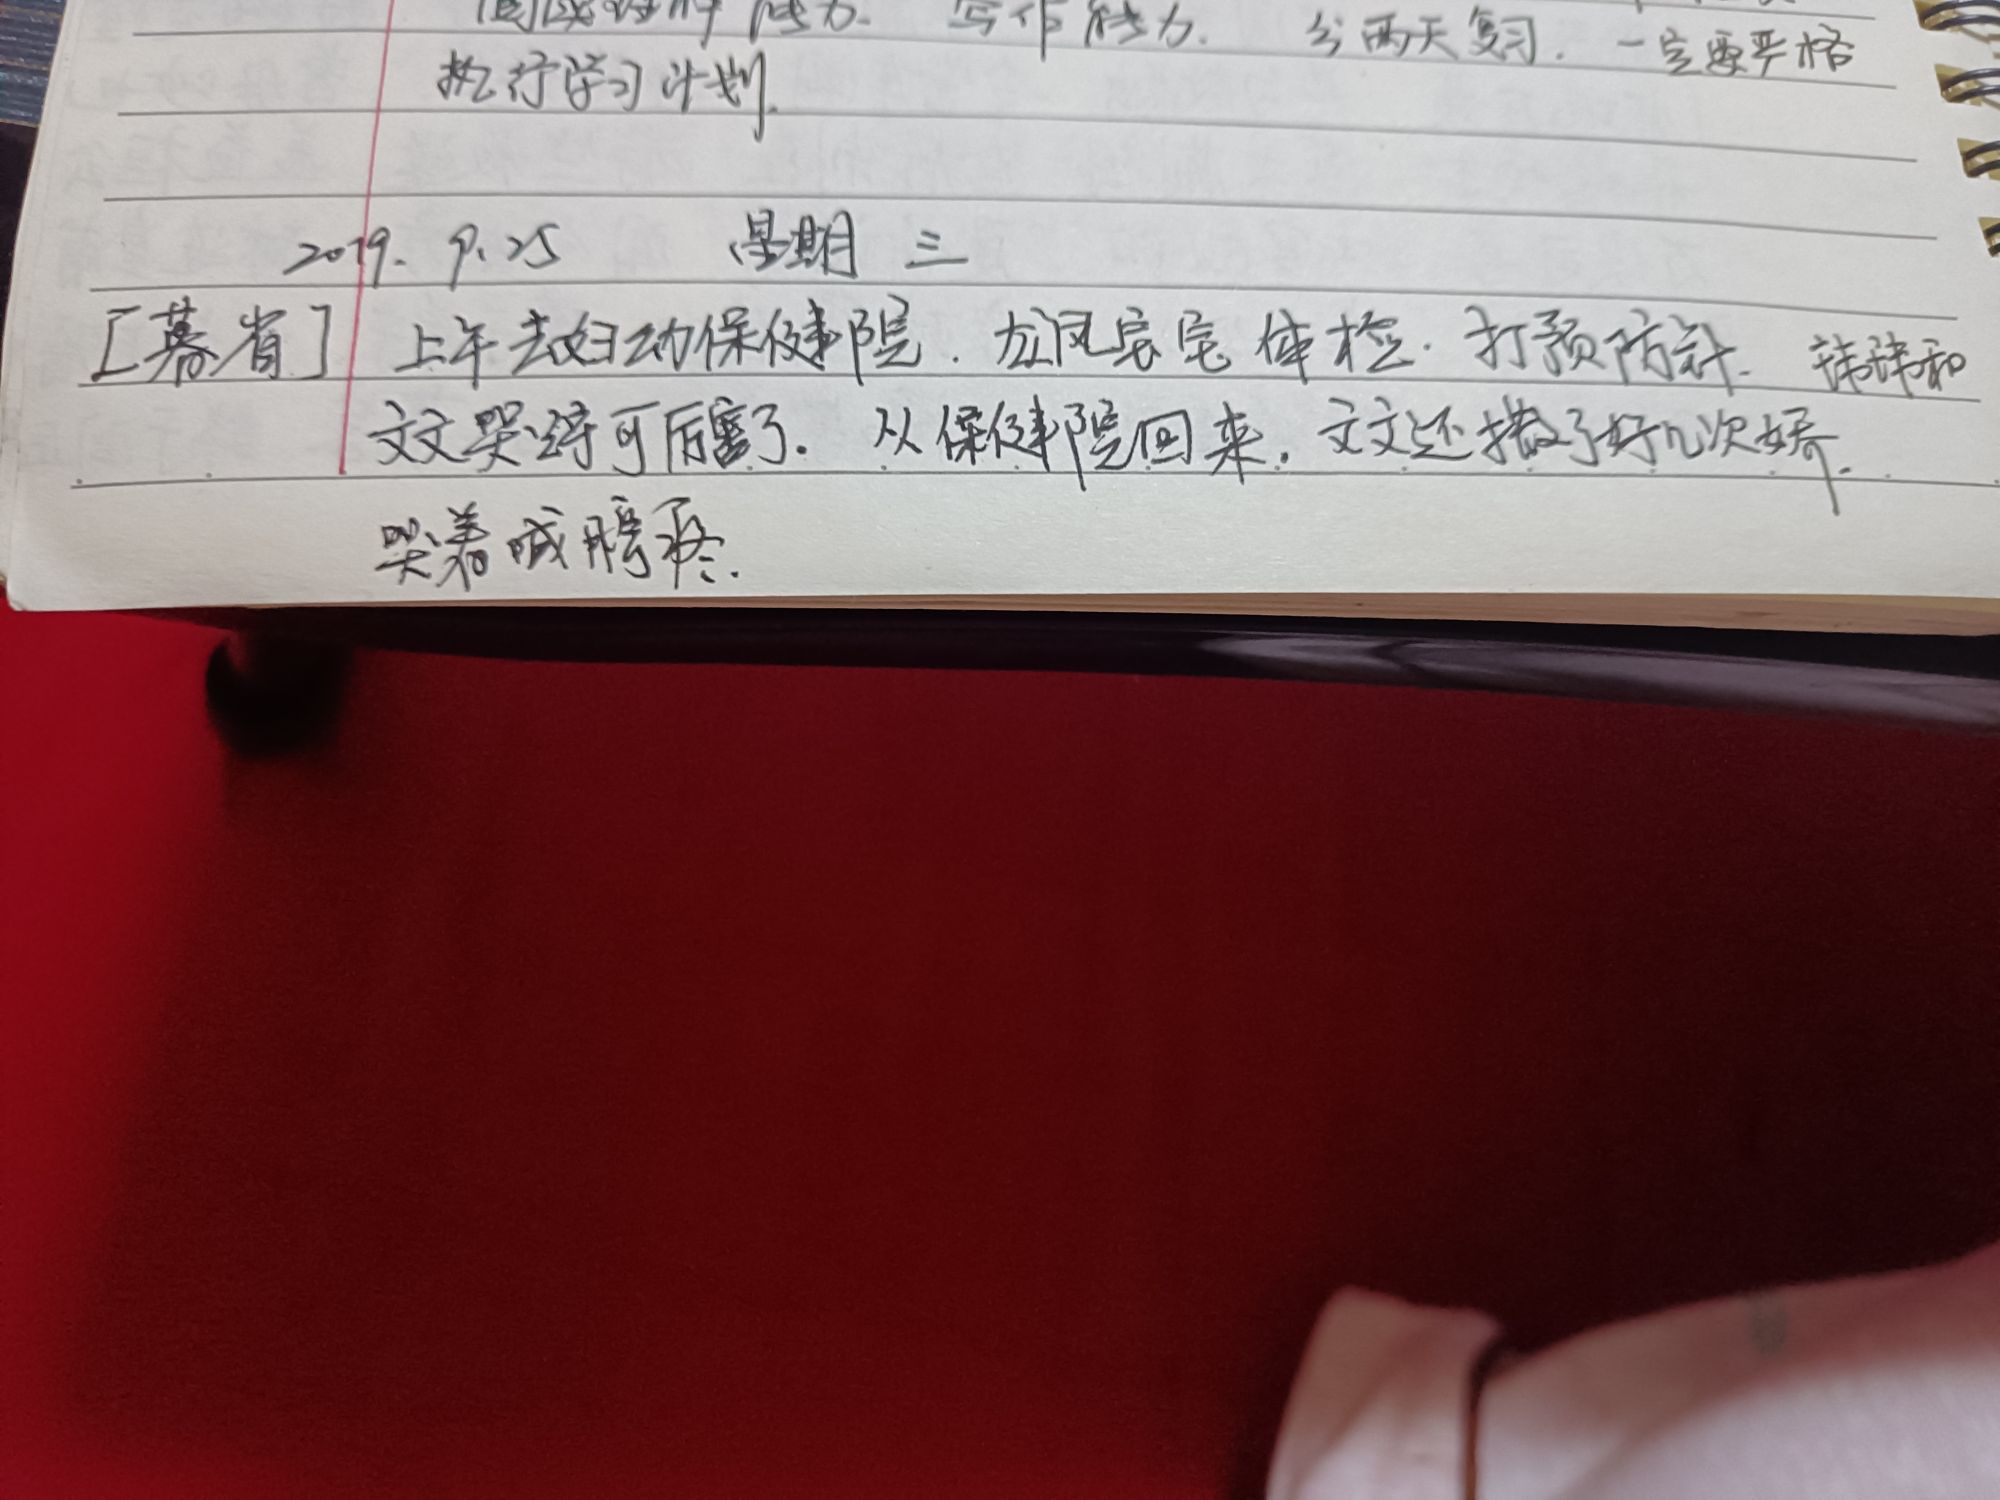 阅读理解能力. 写作能力. 分两天复习. 一定要严格
执行学习计划.
2019. 9.25 星期三
[暮省] 上午去妇幼保健院. 龙凤宝宝体检. 打预防针. 祎祎和
文文哭得可厉害了. 从保健院回来. 文文还撒了好几次娇.
哭着喊膀疼.